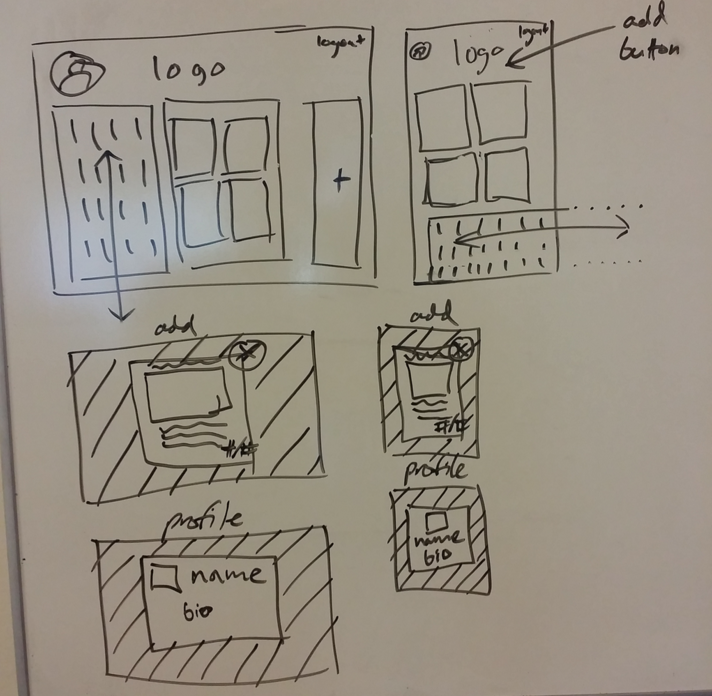 logo
logout
+
logo
logout
add
button
add
#/#
add
#/#
profile
name
bio
profile
name
bio